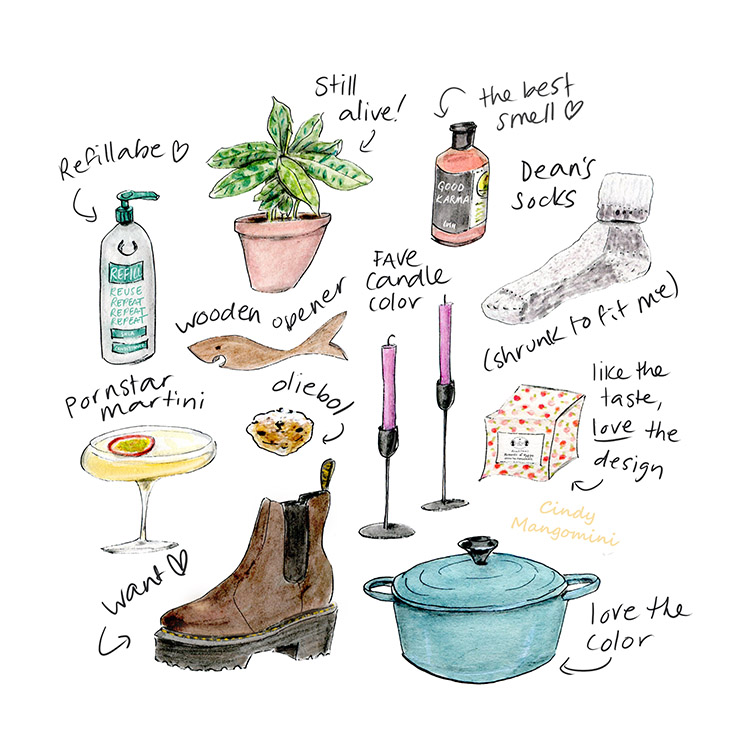 Still
alive!
the best
smell ♡
Refillabe ♡
Dean's
socks
GOOD
KARMA
REFILL
REUSE
REPEAT
REPEAT
REPEAT
FAVE
candle
color
wooden opener
(shrunk to fit me)
Pornstar
martini
oliebol
like the
taste,
love the
design
Cindy
Mangomini
want ♡
love the
color